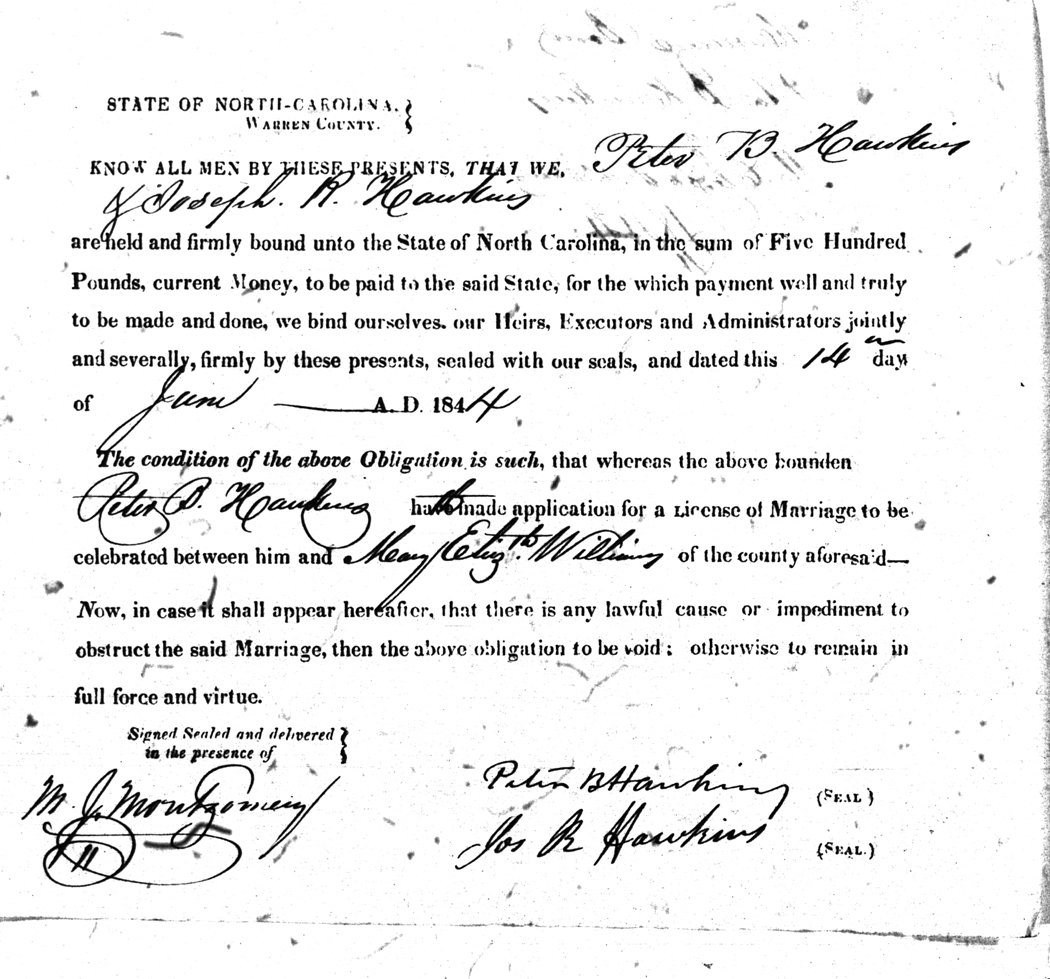 STATE OF NORTH-CAROLINA,
WARREN COUNTY.
KNOW ALL MEN BY THESE PRESENTS, THAT WE, Peter B Hawkins
& Joseph. R. Hawkins
are held and firmly bound unto the State of North Carolina, in the sum of Five Hundred
Pounds, current Money, to be paid to the said State, for the which payment well and truly
to be made and done, we bind ourselves, our Heirs, Executors and Administrators jointly
and severally, firmly by these presents, sealed with our seals, and dated this 14 day
of June A. D. 1844
The condition of the above Obligation is such, that whereas the above bounden
Peter B. Hawkins hath made application for a License of Marriage to be
celebrated between him and Mary Elizth. Williams of the county aforesaid—
Now, in case it shall appear hereafter, that there is any lawful cause or impediment to
obstruct the said Marriage, then the above obligation to be void; otherwise to remain in
full force and virtue.
Signed Sealed and delivered
in the presence of
M. J. Montgomery
Peter B Hawkins (SEAL)
Jos R Hawkins (SEAL.)